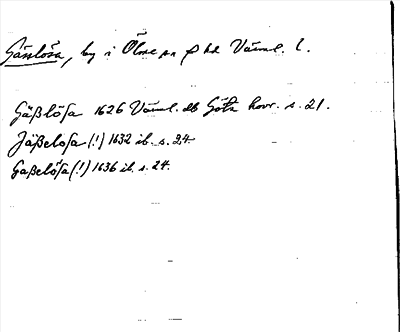 Gässlösa, by i Ölme sn o hd Värml. l.
Gäßlösa 1626 Värml. db Göta hovr. s. 21.
Jäßelosa (!) 1632 ib. s. 24.
Gaßelösa (!) 1636 ib. s. 24.